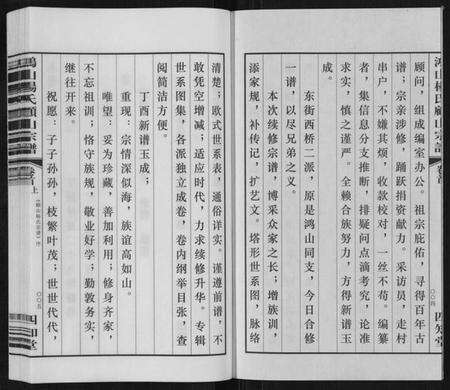 鸿山杨氏顾山宗譜
卷首
〇〇四
四知堂
顾问，组成编室办公。祖宗庇佑，寻得百年古
谱；宗亲涉修，踊跃捐资献力。采访员，走村
串户，不嫌其烦，收款校对，一丝不苟。编纂
者，集信息分支推断，排疑问点滴考究，论准
求实，慎之谨严。全赖合族努力，方得新谱玉
成。
东街西桥二派，原是鸿山同支，今日合修
一谱，以尽兄弟之义。
本次续修宗谱，博采众家之长；增族训，
添家规，补传记，扩艺文。塔形世系图，脉络
清楚；欧式世系表，通俗详实。谨遵前谱，不
敢凭空增减；适应时代，力求续修升华。专辑
世系图集，各派独立成卷，卷内纲举目张，查
阅简洁方便。
丁酉新谱玉成；
重现：宗情深似海，族谊高如山。
唯望：妥为珍藏，善加利用；修身齐家，
不忘祖训；恪守族规，敬业好学；勤敦务实，
继往开来。
祝愿：子子孙孙，枝繁叶茂；世世代代，
鸿山杨氏顾山宗譜
卷首上
序
〇〇五
四知堂